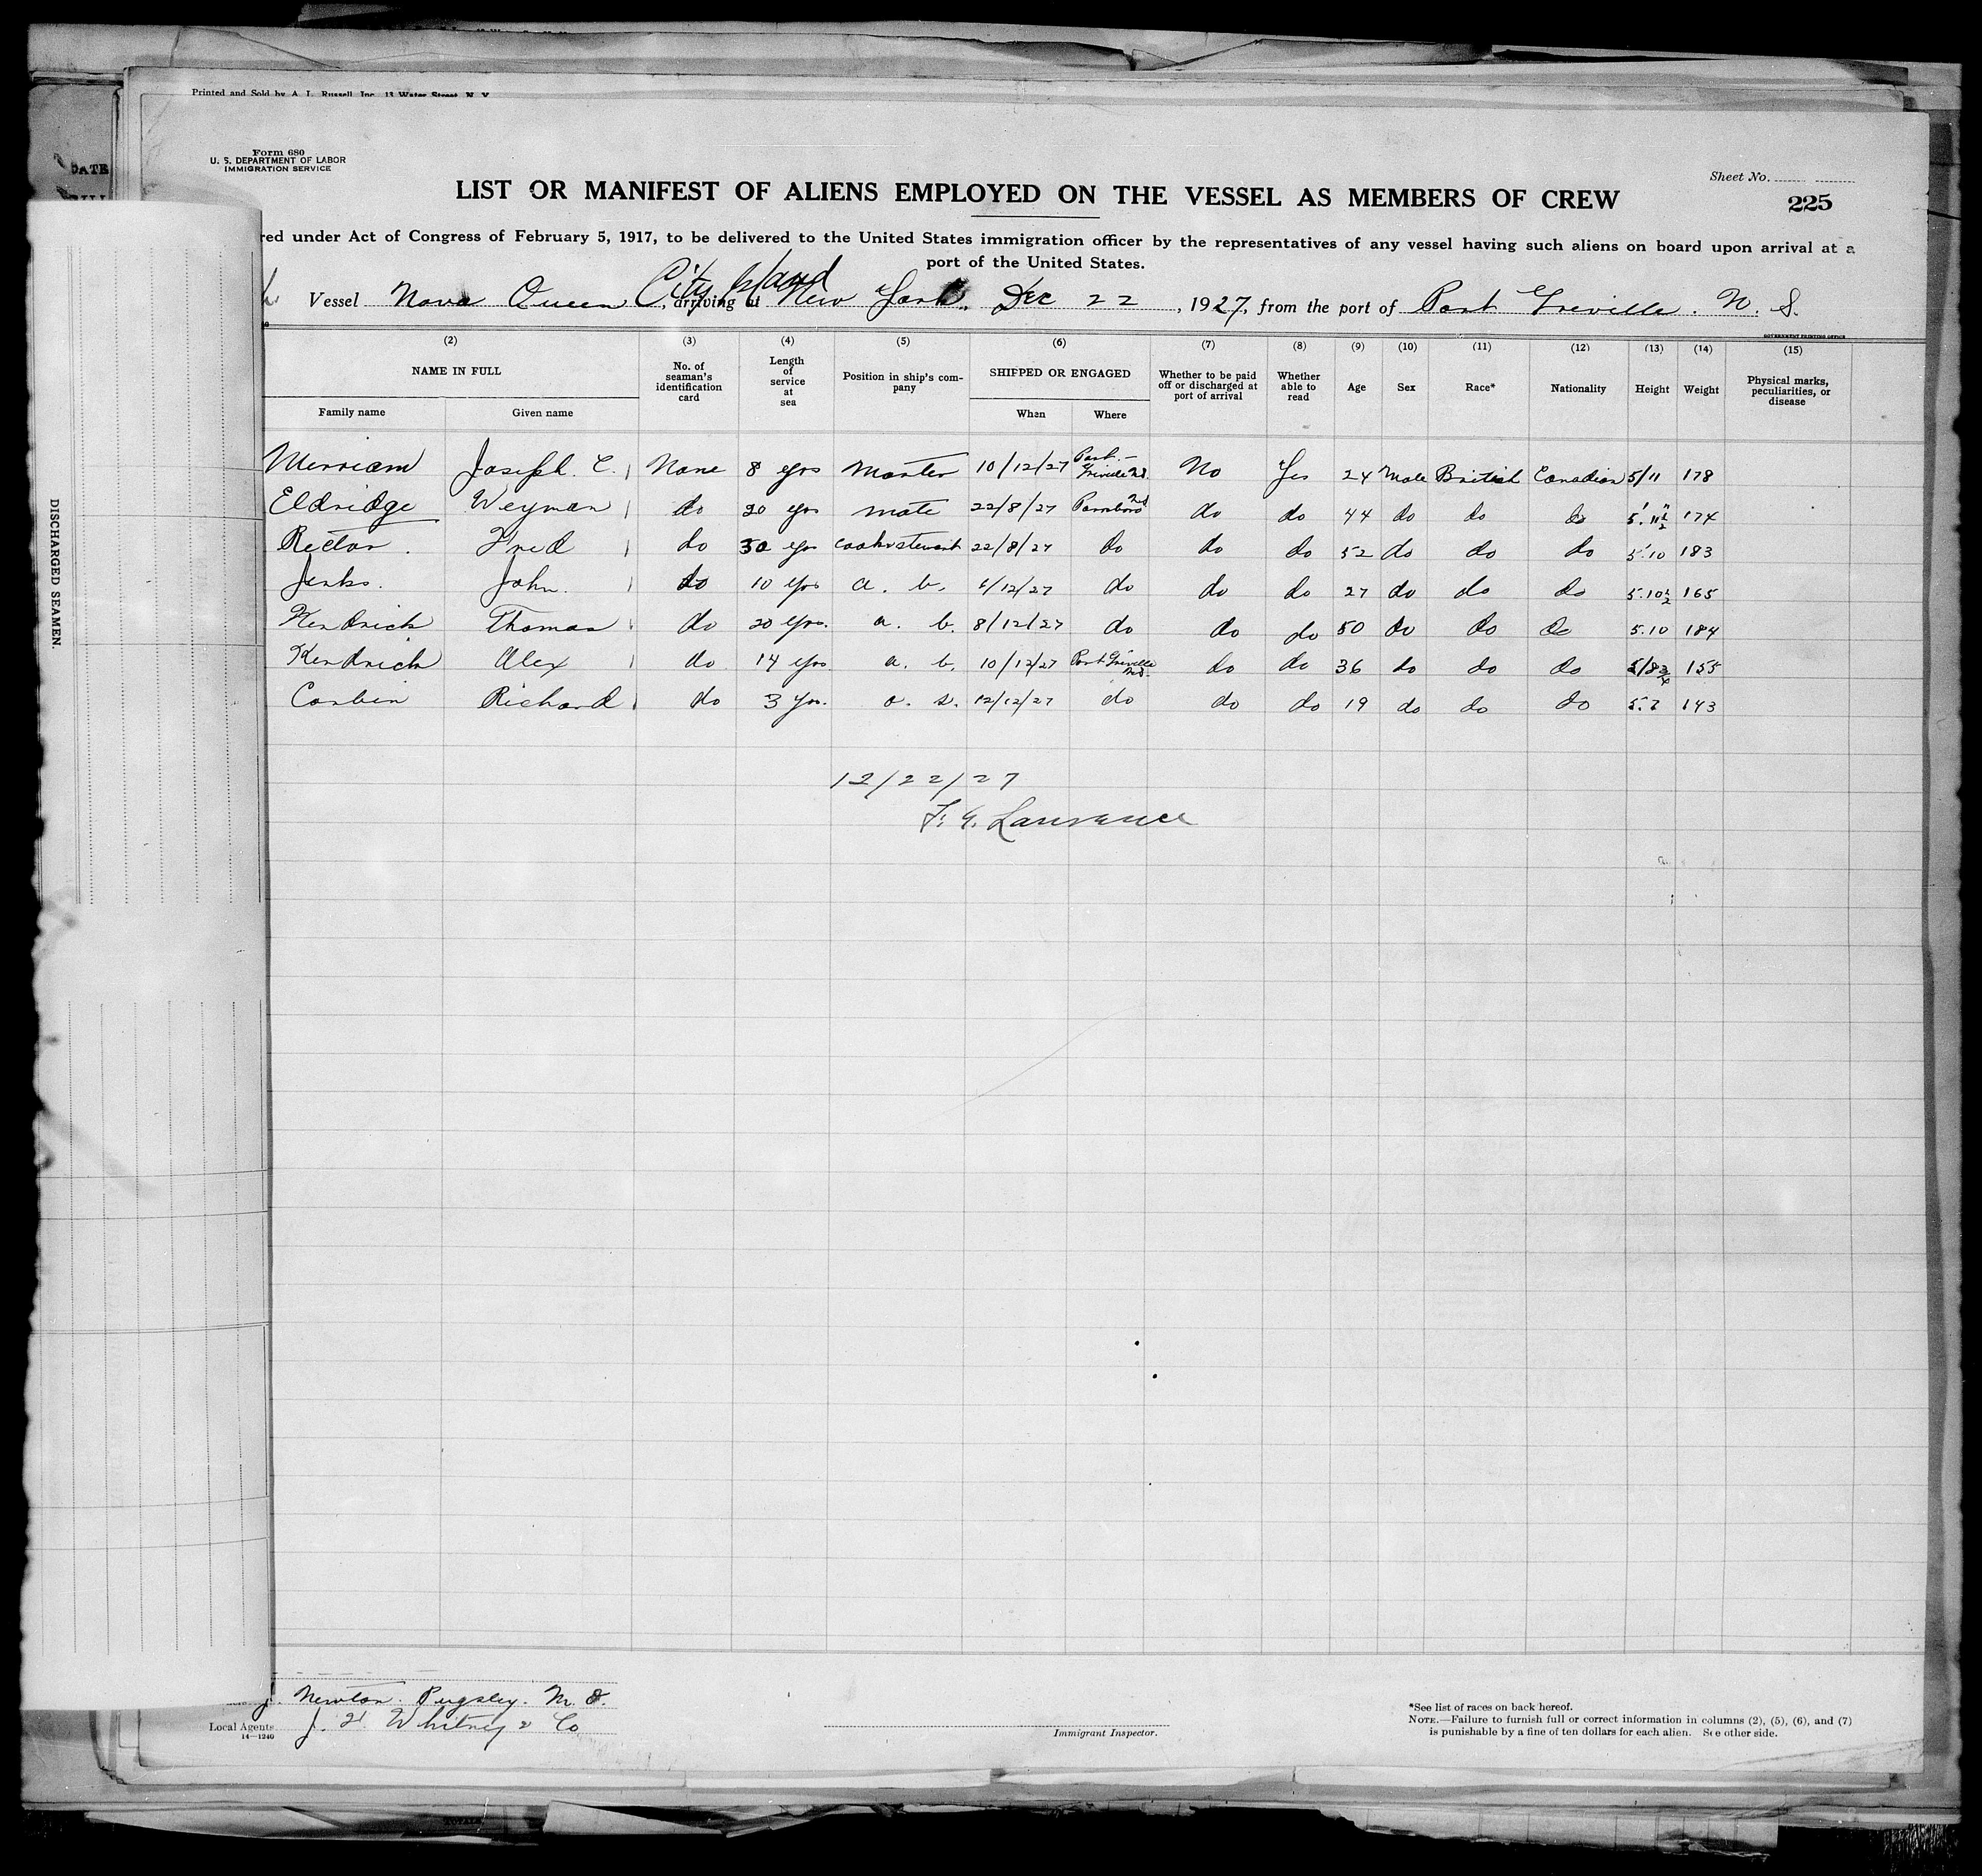 Printed and Sold by A. L. Russell Inc. 13 Water Street, N. Y.
DATE
Form 680
U. S. DEPARTMENT OF LABOR
IMMIGRATION SERVICE
Sheet No.
LIST OR MANIFEST OF ALIENS EMPLOYED ON THE VESSEL AS MEMBERS OF CREW
225
red under Act of Congress of February 5, 1917, to be delivered to the United States immigration officer by the representatives of any vessel having such aliens on board upon arrival at a
port of the United States.
Vessel Nova Queen, arriving at City Island New York. Dec 22, 1927, from the port of Port Greville. N. S.
GOVERNMENT PRINTING OFFICE
(2) (3) (4) (5) (6) (7) (8) (9) (10) (11) (12) (13) (14) (15)
NAME IN FULL No. of seaman's identification card Length of service at sea Position in ship's company SHIPPED OR ENGAGED Whether to be paid off or discharged at port of arrival Whether able to read Age Sex Race* Nationality Height Weight Physical marks, peculiarities, or disease
Family name Given name When Where
Merriam Joseph. C. None 8 yrs Master 10/12/27 Port-Greville NS. No Yes 24 Male British Canadian 5/11 178
Eldridge Weyman do 20 yrs mate 22/8/27 Parrsboro NS do do 44 do do do 5' 11½" 174
Rector. Fred do 30 yrs cook & steward 22/8/27 do do do 52 do do do 5.10 183
Jenks. John. do 10 yrs a. b. 6/12/27 do do do 27 do do do 5.10½ 165
Kendrick Thomas do 20 yrs. a. b. 8/12/27 do do do 50 do do do 5.10 184
Kendrick Alex do 14 yrs a. b. 10/12/27 Port Greville NS. do do 36 do do do 5/8¾ 155
Corbin Richard do 3 yrs. o. s. 12/12/27 do do do 19 do do do 5.7 143
12/22/27
F. G. Lawrence
DISCHARGED SEAMEN.
Newton. Pugsley. M. D.
Local Agents J. H. Whitney & Co
14—1240
Immigrant Inspector.
*See list of races on back hereof.
NOTE.—Failure to furnish full or correct information in columns (2), (5), (6), and (7)
is punishable by a fine of ten dollars for each alien. See other side.